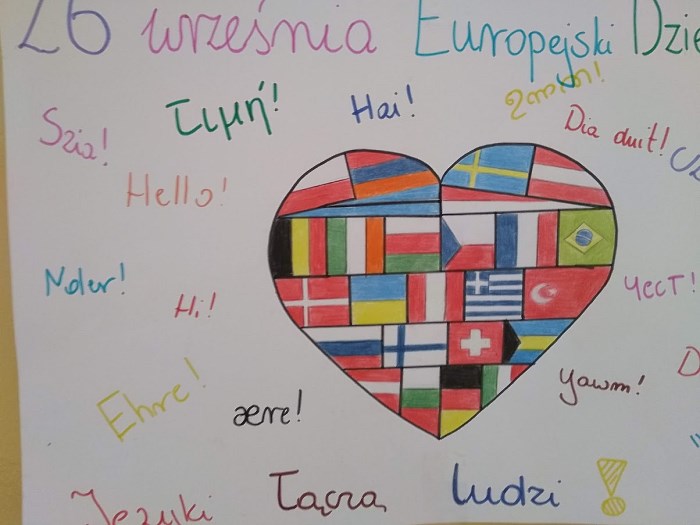 26 września Europejski Dzie
Szia!
τιμή!
Hai!
Dia duit!
Hello!
Noler!
Hi!
чест!
Ehre!
ære!
yawm!
D
Języki łączą ludzi!